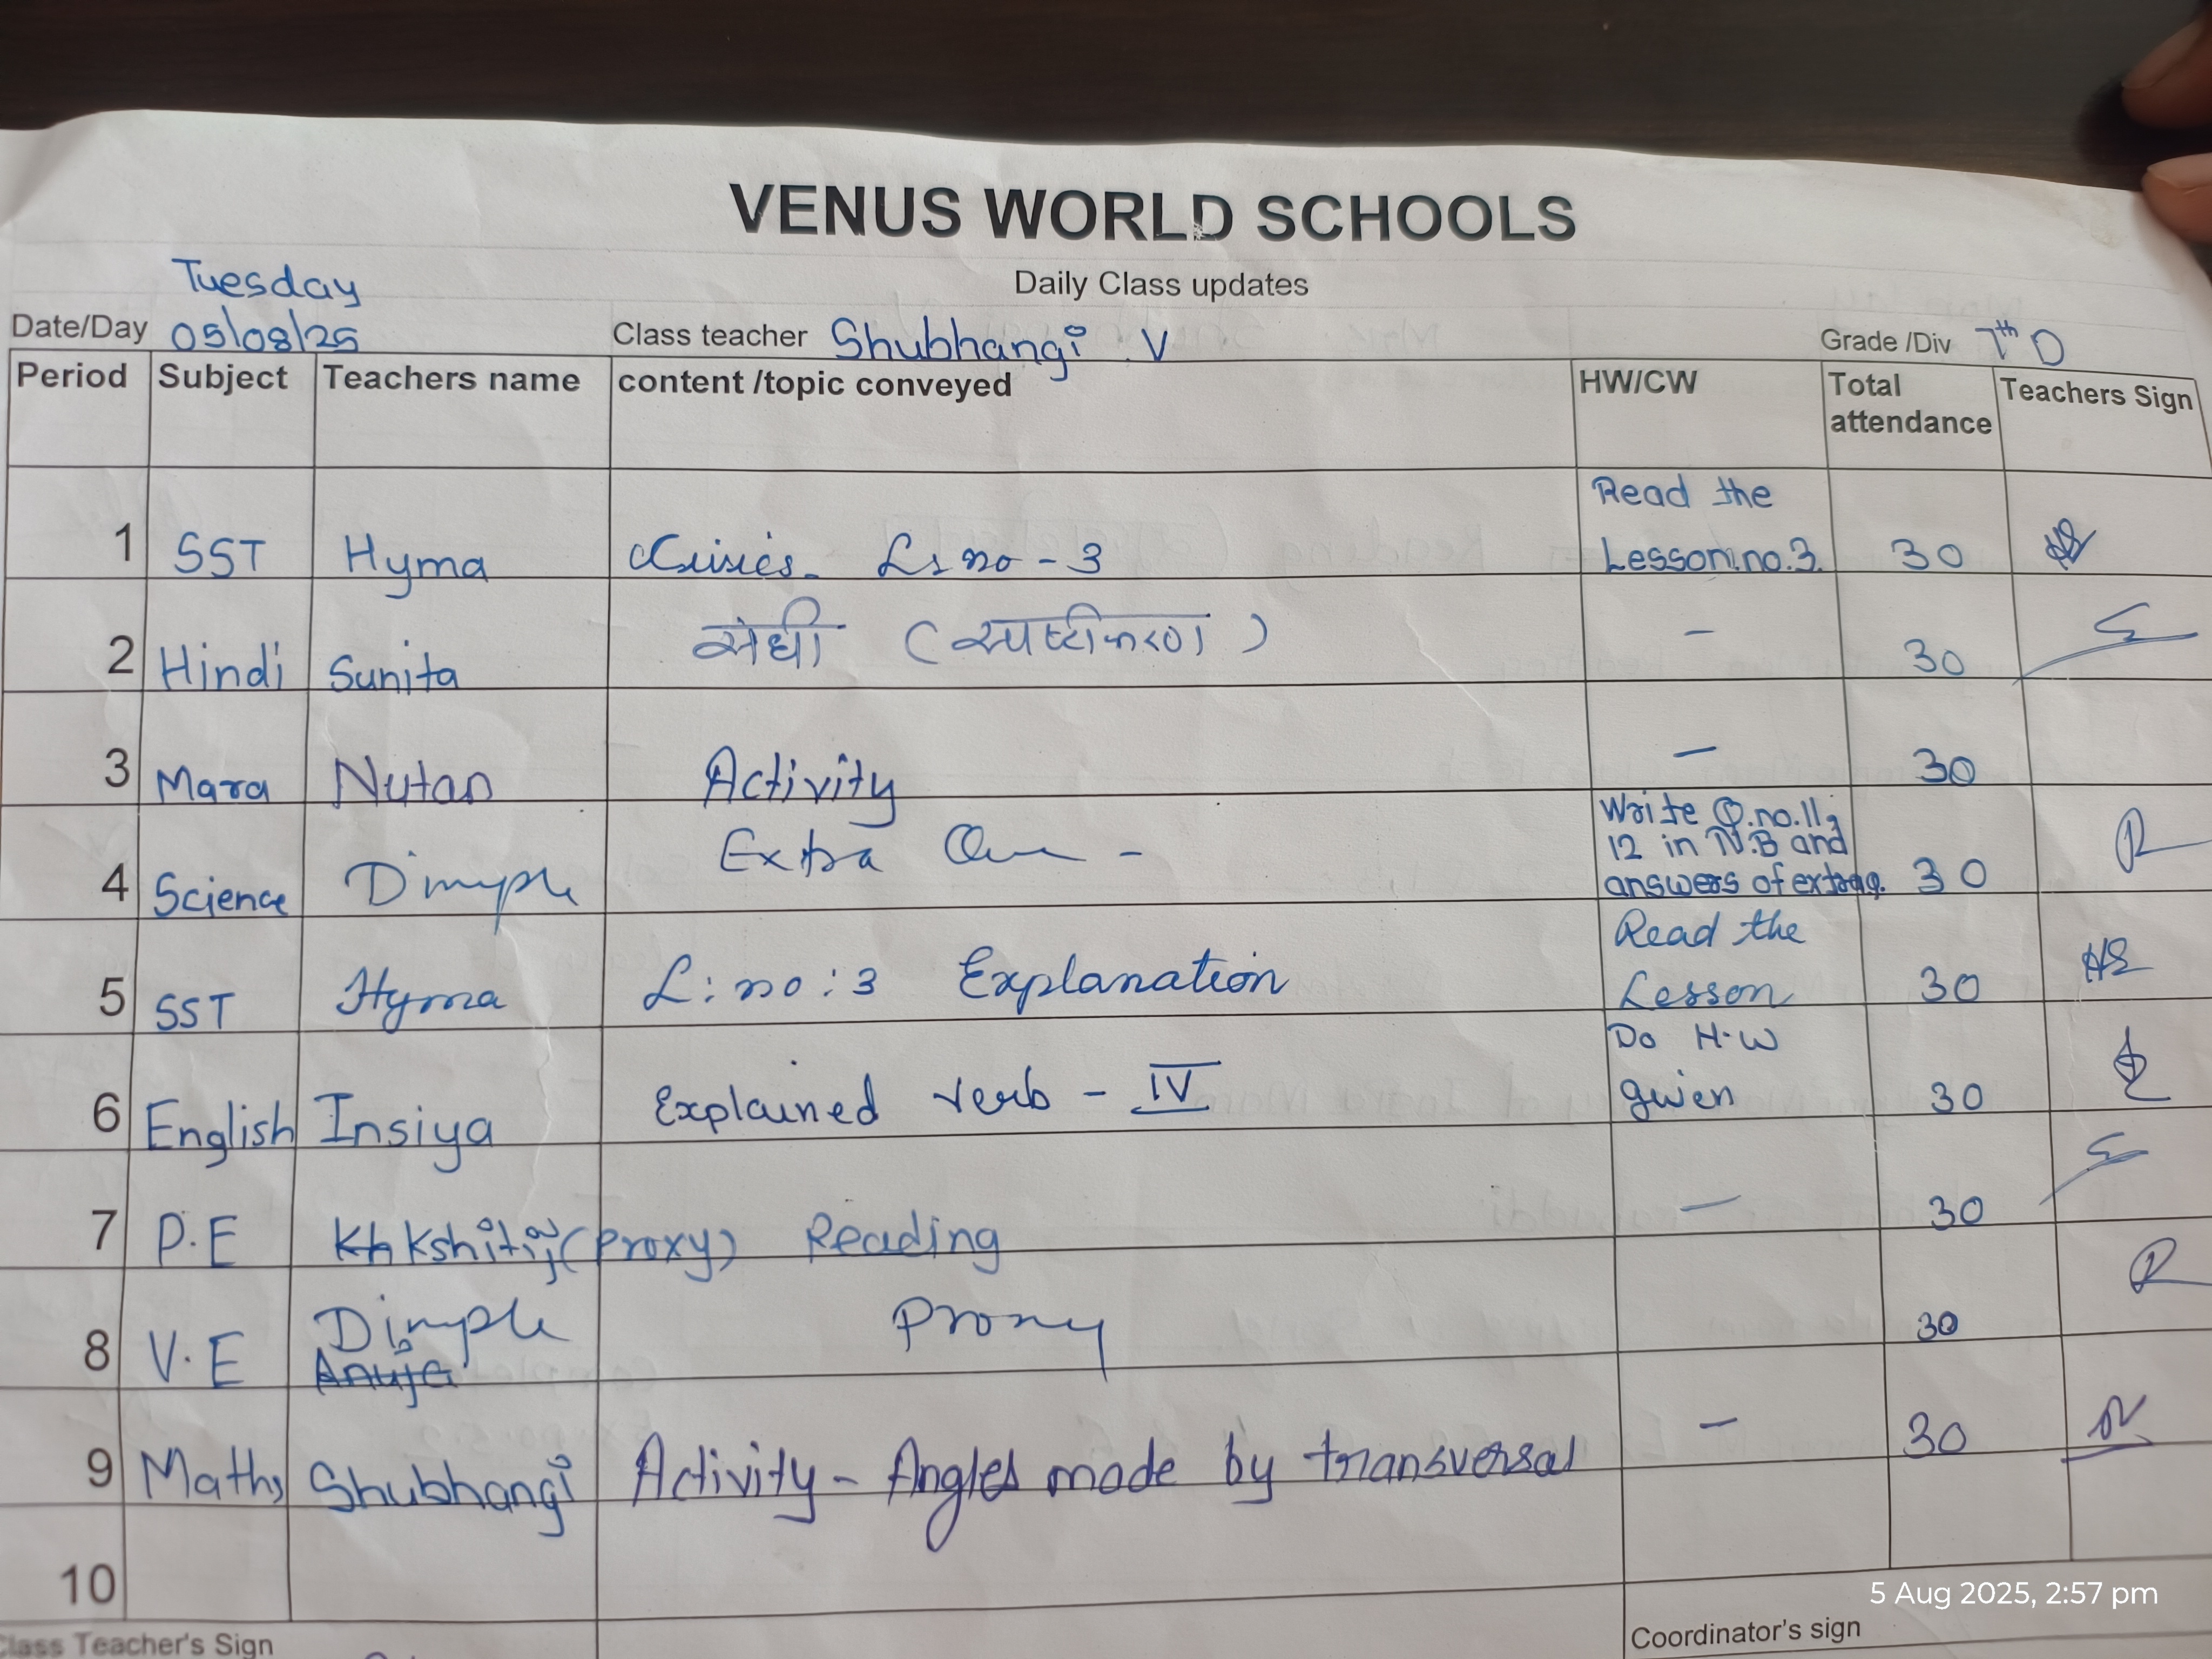 VENUS WORLD SCHOOLS
Daily Class updates
Tuesday
Date/Day 05/08/25 Class teacher Shubhangi .V Grade /Div 7th D
Period Subject Teachers name content /topic conveyed HW/CW Total attendance Teachers Sign
1 SST Hyma Civics. L: no - 3 Read the Lesson.no.3. 30
2 Hindi Sunita संधी (स्पष्टीकरण) - 30
3 Mara Nutan Activity - 30
4 Science Dimple Extra Que - Write Q.no.11, 12 in N.B and answers of extra q. 30
5 SST Hyma L: no: 3 Explanation Read the Lesson 30 HS
6 English Insiya Explained verb - IV Do H.W given 30
7 P.E Kh Kshitij (Proxy) Reading - 30
8 V.E Dimple Anuja Proxy 30
9 Maths Shubhangi Activity - Angles made by transversal - 30
10
Class Teacher's Sign Coordinator's sign
5 Aug 2025, 2:57 pm